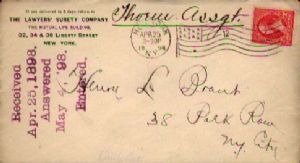 If not delivered in 5 days, return to
THE LAWYERS' SURETY COMPANY,
THE MUTUAL LIFE BUILDING,
32, 34 & 36 LIBERTY STREET
NEW YORK.
Thorne Assgt.
APR 25
N.Y.
Received
Apr. 25, 1898.
Answered
May 4/ 98.
Entered.
Henry L. Brant
38 Park Row
N.Y. City